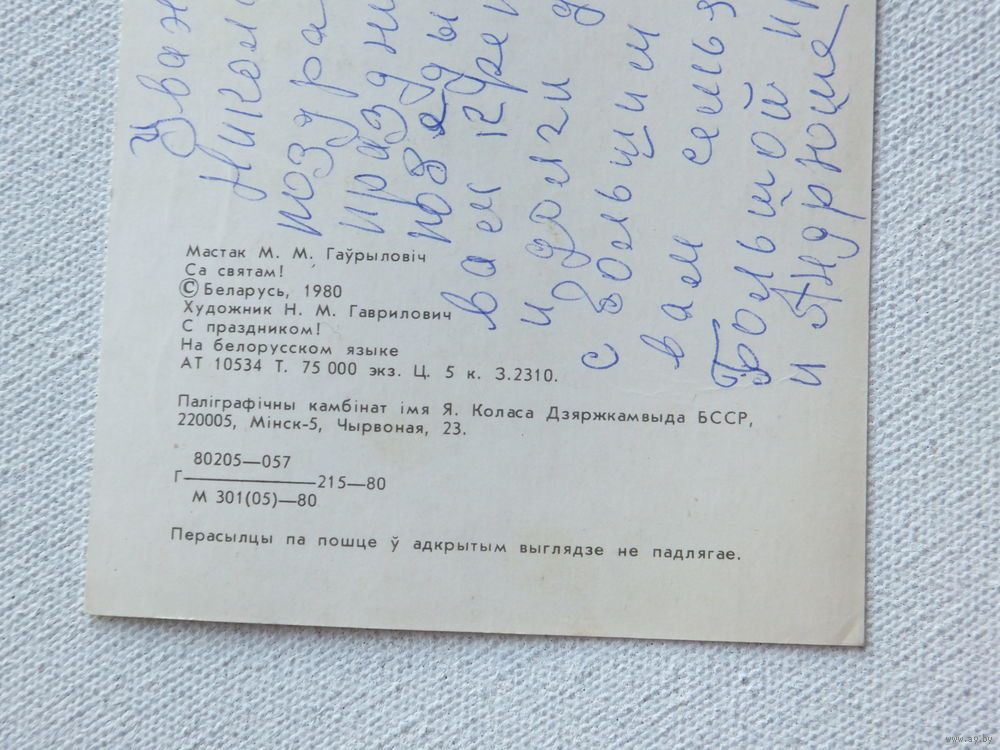 Уваж
Никол
позура
праздни
победы
вам кре
и долги
с большим
вам семья
Большой пр
и Андрюше
Мастак М. М. Гаўрыловіч
Са святам!
© Беларусь, 1980
Художник Н. М. Гаврилович
С праздником!
На белорусском языке
АТ 10534 Т. 75 000 экз. Ц. 5 к. З.2310.
Паліграфічны камбінат імя Я. Коласа Дзяржкамвыда БССР,
220005, Мінск-5, Чырвоная, 23.
80205—057
Г————215—80
М 301(05)—80
Перасылцы па пошце ў адкрытым выглядзе не падлягае.
www.ay.by